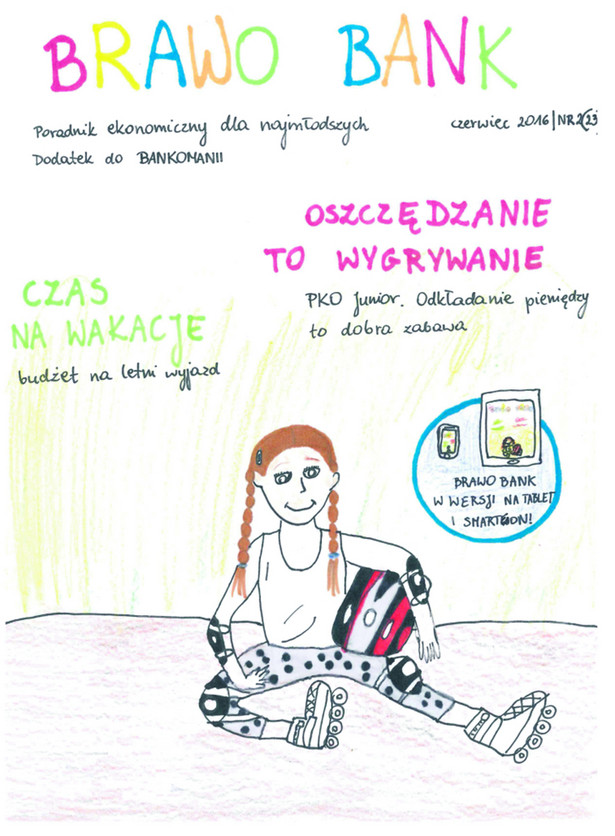 BRAWO BANK
Poradnik ekonomiczny dla najmłodszych
czerwiec 2016|NR2(23
Dodatek do BANKOMANII
OSZCZĘDZANIE
TO WYGRYWANIE
PKO Junior. Odkładanie pieniędzy
to dobra zabawa
CZAS
NA WAKACJE
budżet na letni wyjazd
BRAWO BANK
W WERSJI NA TABLET
I SMARTFON!